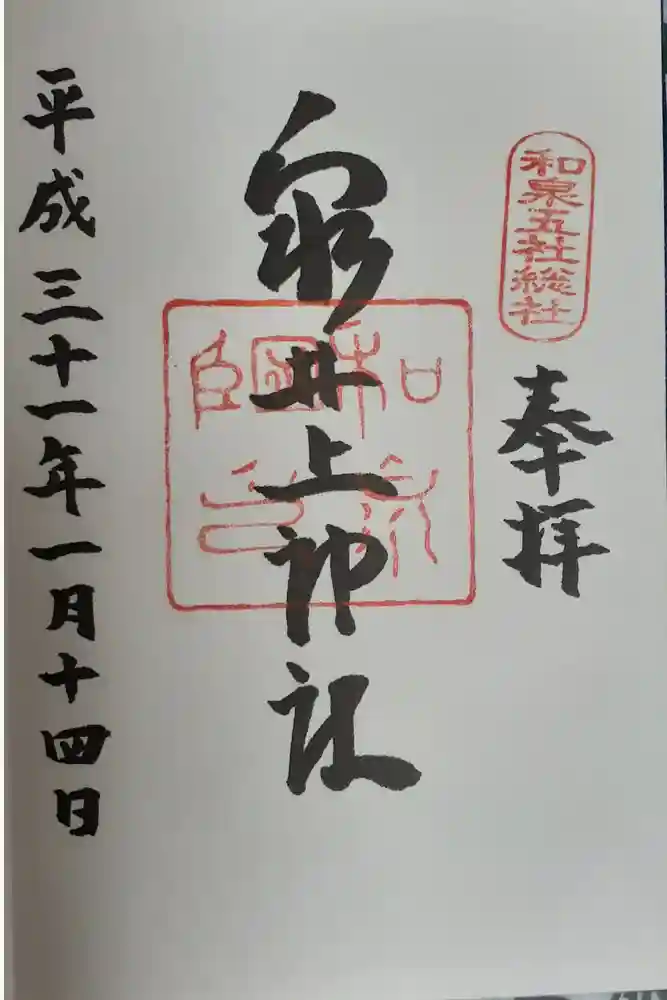 和泉五社総社
奉拝
泉井上神社
平成三十一年一月十四日